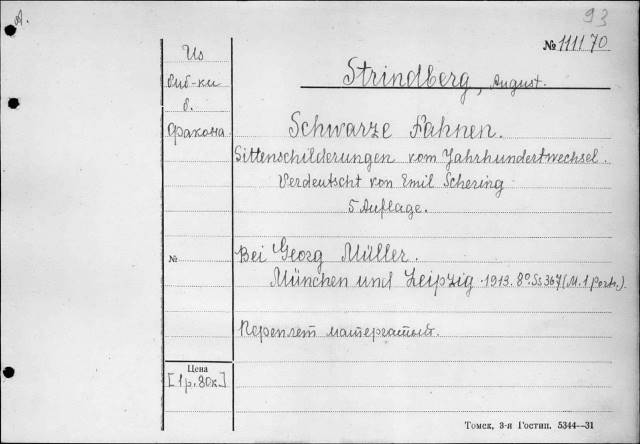 93
А.
№ 111170
Из
биб-ки
в.
Фракона.
Strindberg, August.
Schwarze Fahnen.
Sittenschilderungen vom Jahrhundertwechsel.
Verdeutscht von Emil Schering
5 Auflage.
№
Bei Georg Müller.
München und Leipzig. 1913. 8º. Ss 367 (M. 1 portr.).
Переплет
Цена
[1 р. 80к.]
Томск, 3-я Гостип. 5344—31